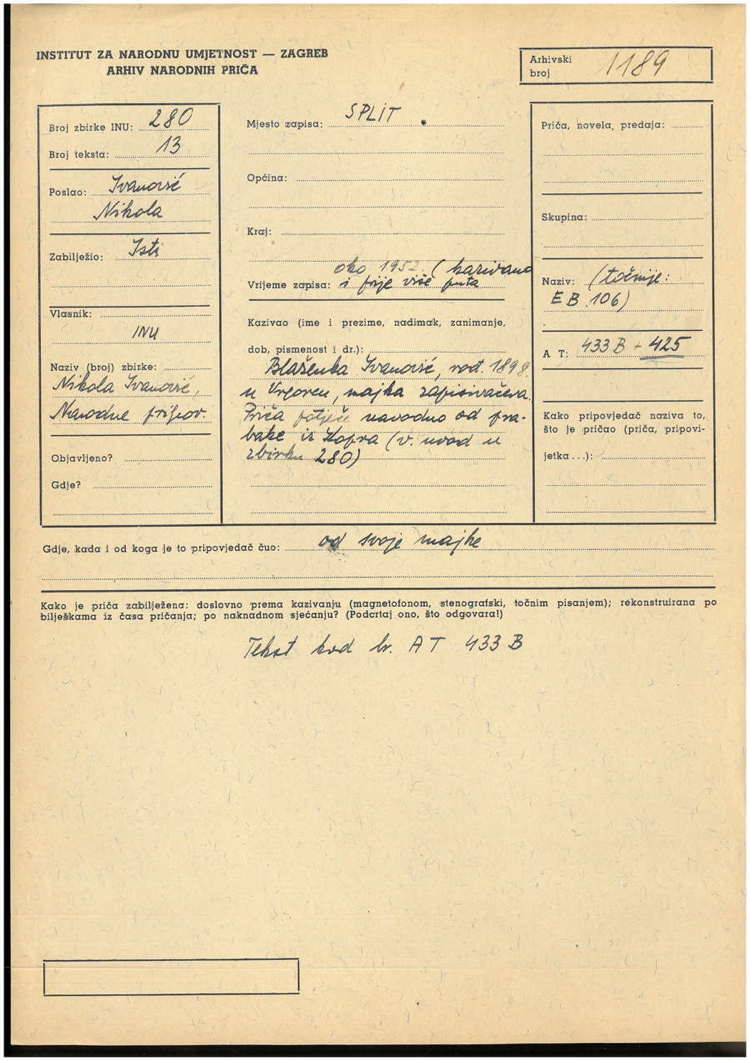 INSTITUT ZA NARODNU UMJETNOST — ZAGREB
ARHIV NARODNIH PRIČA
Arhivski broj 1189
Broj zbirke INU: 280
Broj teksta: 13
Poslao: Ivanović
Nikola
Zabilježio: Isti
Vlasnik:
INU
Naziv (broj) zbirke:
Nikola Ivanović,
Narodne pripov.
Objavljeno?
Gdje?
Mjesto zapisa: SPLIT
Općina:
Kraj:
oko 1952 (kazivano
Vrijeme zapisa: i prije više puta
Kazivao (ime i prezime, nadimak, zanimanje,
dob, pismenost i dr.):
Blaženka Ivanović, rođ. 1898.
u Vrgorcu, majka zapisivačeva.
Priča potječe navodno od pra-
bake iz (v. uvod u
zbirku 280)
Priča, novela, predaja:
Skupina:
Naziv: (točnije:
EB. 106)
A T: 433 B + 425
Kako pripovjedač naziva to,
što je pričao (priča, pripovi-
jetka...):
Gdje, kada i od koga je to pripovjedač čuo: od svoje majke
Kako je priča zabilježena: doslovno prema kazivanju (magnetofonom, stenografski, točnim pisanjem); rekonstruirana po
bilješkama iz časa pričanja; po naknadnom sjećanju? (Podcrtaj ono, što odgovara!)
Tekst kod br. AT 433 B